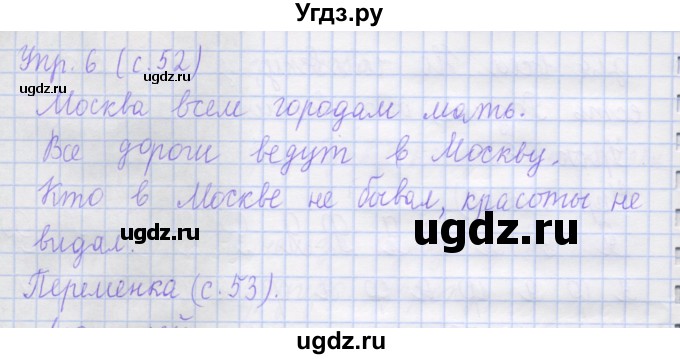 Угдз.ру
Упр. 6 (с.52)
ugdz.ru ugdz.ru
Москва всем городам мать.
Все дороги ведут в Москву.
Кто в Москве не бывал, красоты не
ugdz.ru ugdz.ru
видал.
Переменка (с.53).
ugdz.ru ugdz.ru